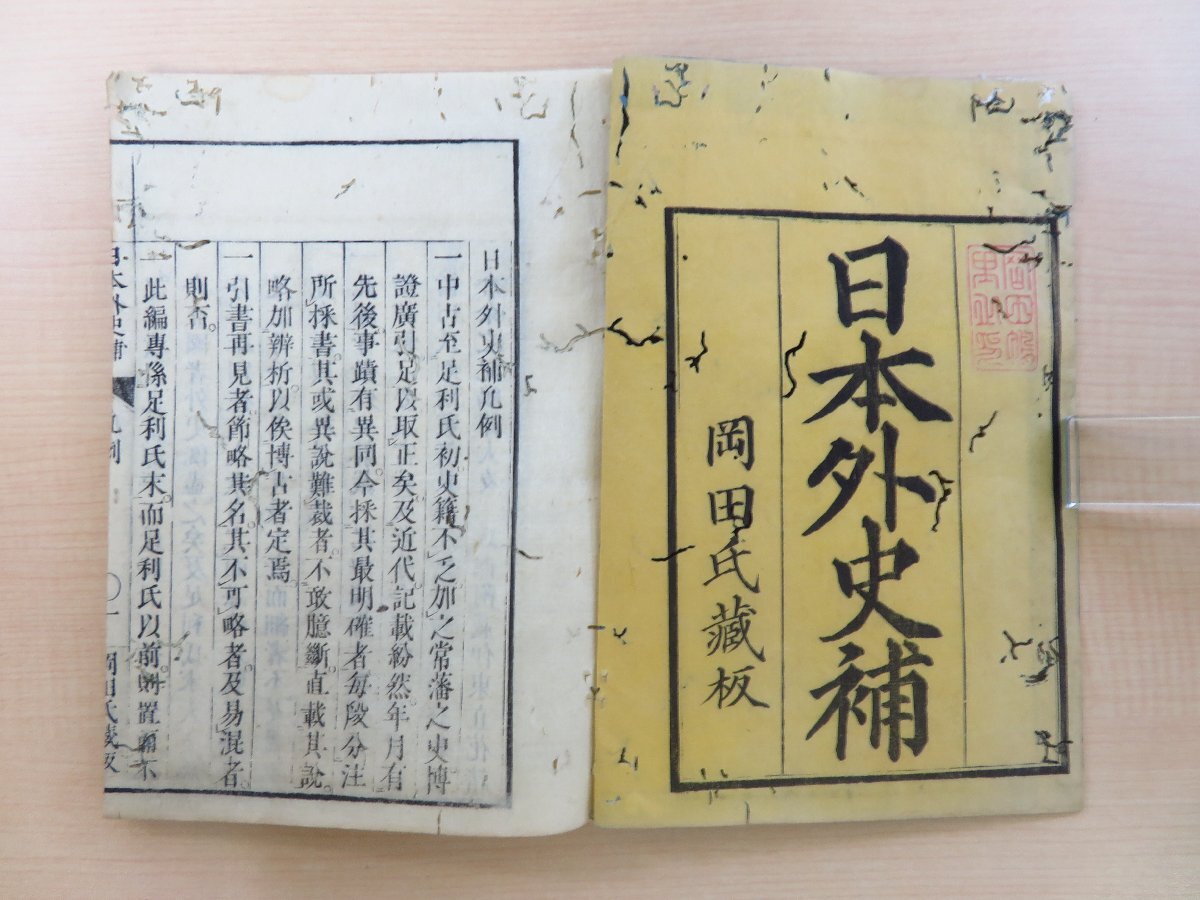 日本外史補
岡田氏藏板
日本外史補凡例
一中古至足利氏初史籍不乏加之常藩之史博
證廣引足以取正矣及近代記載紛然年月有
先後事蹟有異同今採其最明確者每段分注
所採書其或異說難裁者不敢臆斷直載其說
略加辨析以俟博古者定焉
一引書再見者節略其名其不可略者及易混者
則否
一此編專係足利氏末而足利氏以前則置而不
日本外史補 凡例 ○一 岡田氏藏板